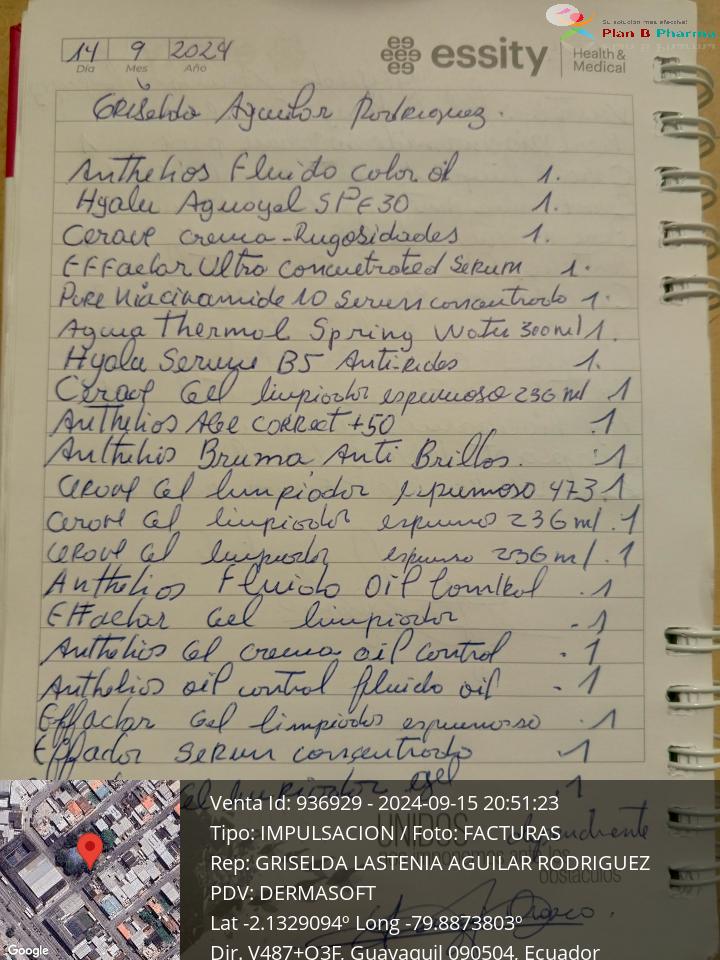 Su solución más efectiva!
Plan B Pharma
14 9 2024
Día Mes Año
essity
Health &
Medical
Griselda Aguilar Rodriguez.
Anthelios Fluido color oil 1.
Hyalu Aguagel SPF 30 1.
Cerave crema-Rugosidades 1.
EFFaclar Ultra Concentrated Serum 1.
Pure Niacinamide 10 Serum concentrado 1.
Agua Thermal Spring Water 300ml 1.
Hyalu Serum B5 Anti-
Cerave Gel limpiador espumoso 236 ml 1
Anthelios AGE CORRECT +50 .1
Anthelios Bruma Anti Brillos. .1
Cerave Gel limpiador espumoso 473.1
Cerave Gel limpiador espumo 236 ml .1
Cerave Gel limpiador espumo 236 ml .1
Anthelios Fluido Oil Control .1
EFFaclar Gel limpiador .1
Anthelios Gel crema oil control .1
Anthelios oil control fluido oil .1
Effaclar Gel limpiador espumoso .1
Effaclar Serum concentrado .1
Gel limpiador .1
UNIDOS
obstáculos
Google
Venta Id: 936929 - 2024-09-15 20:51:23
Tipo: IMPULSACION / Foto: FACTURAS
Rep: GRISELDA LASTENIA AGUILAR RODRIGUEZ
PDV: DERMASOFT
Lat -2.1329094º Long -79.8873803º
Dir. V487+Q3F, Guayaquil 090504, Ecuador